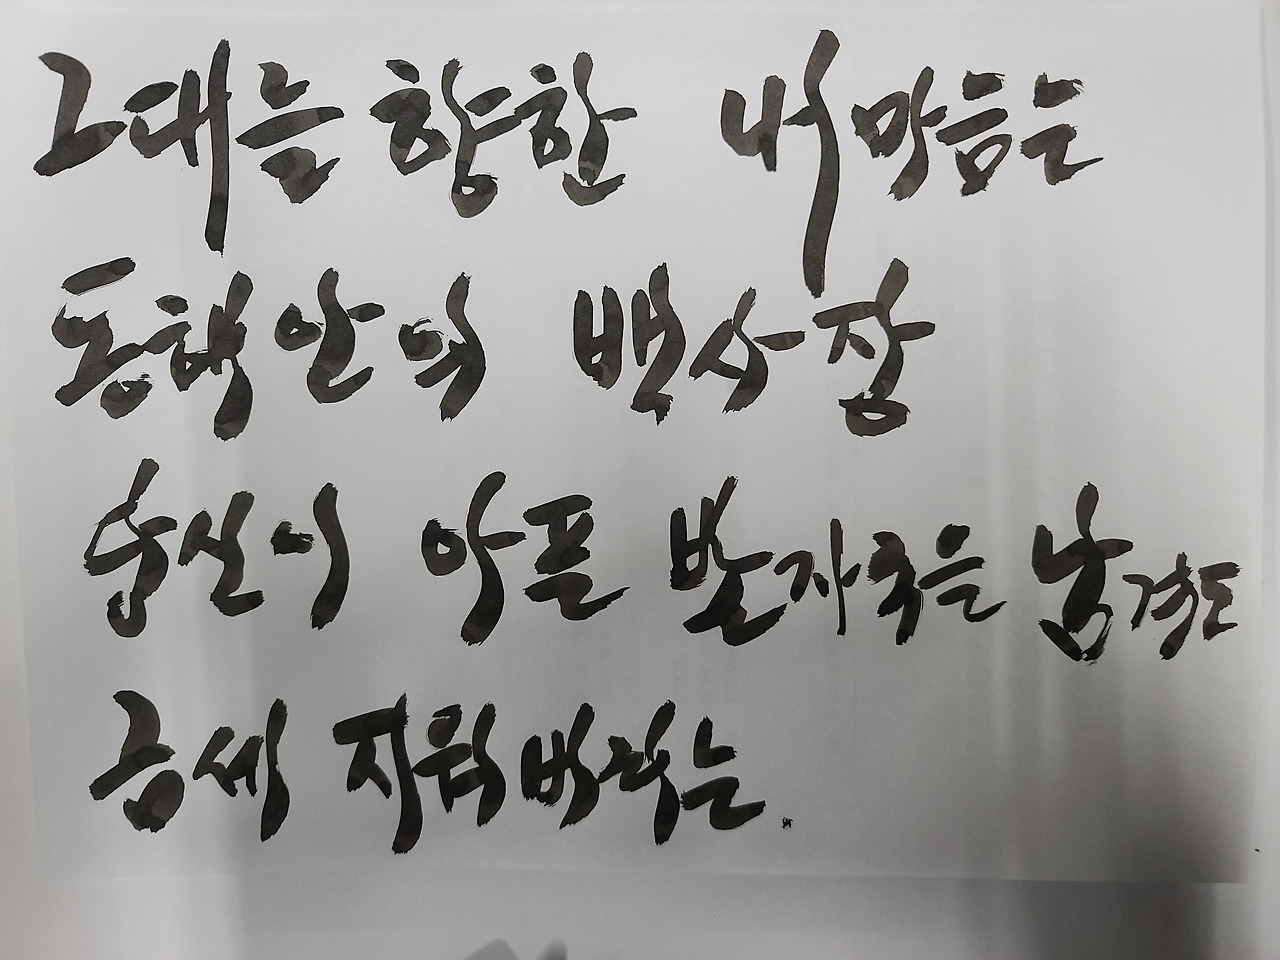 그대를 향한 내 마음은
동해안의 백사장
당신이 아픈 발자국은 남겨도
금세 지워버리는.